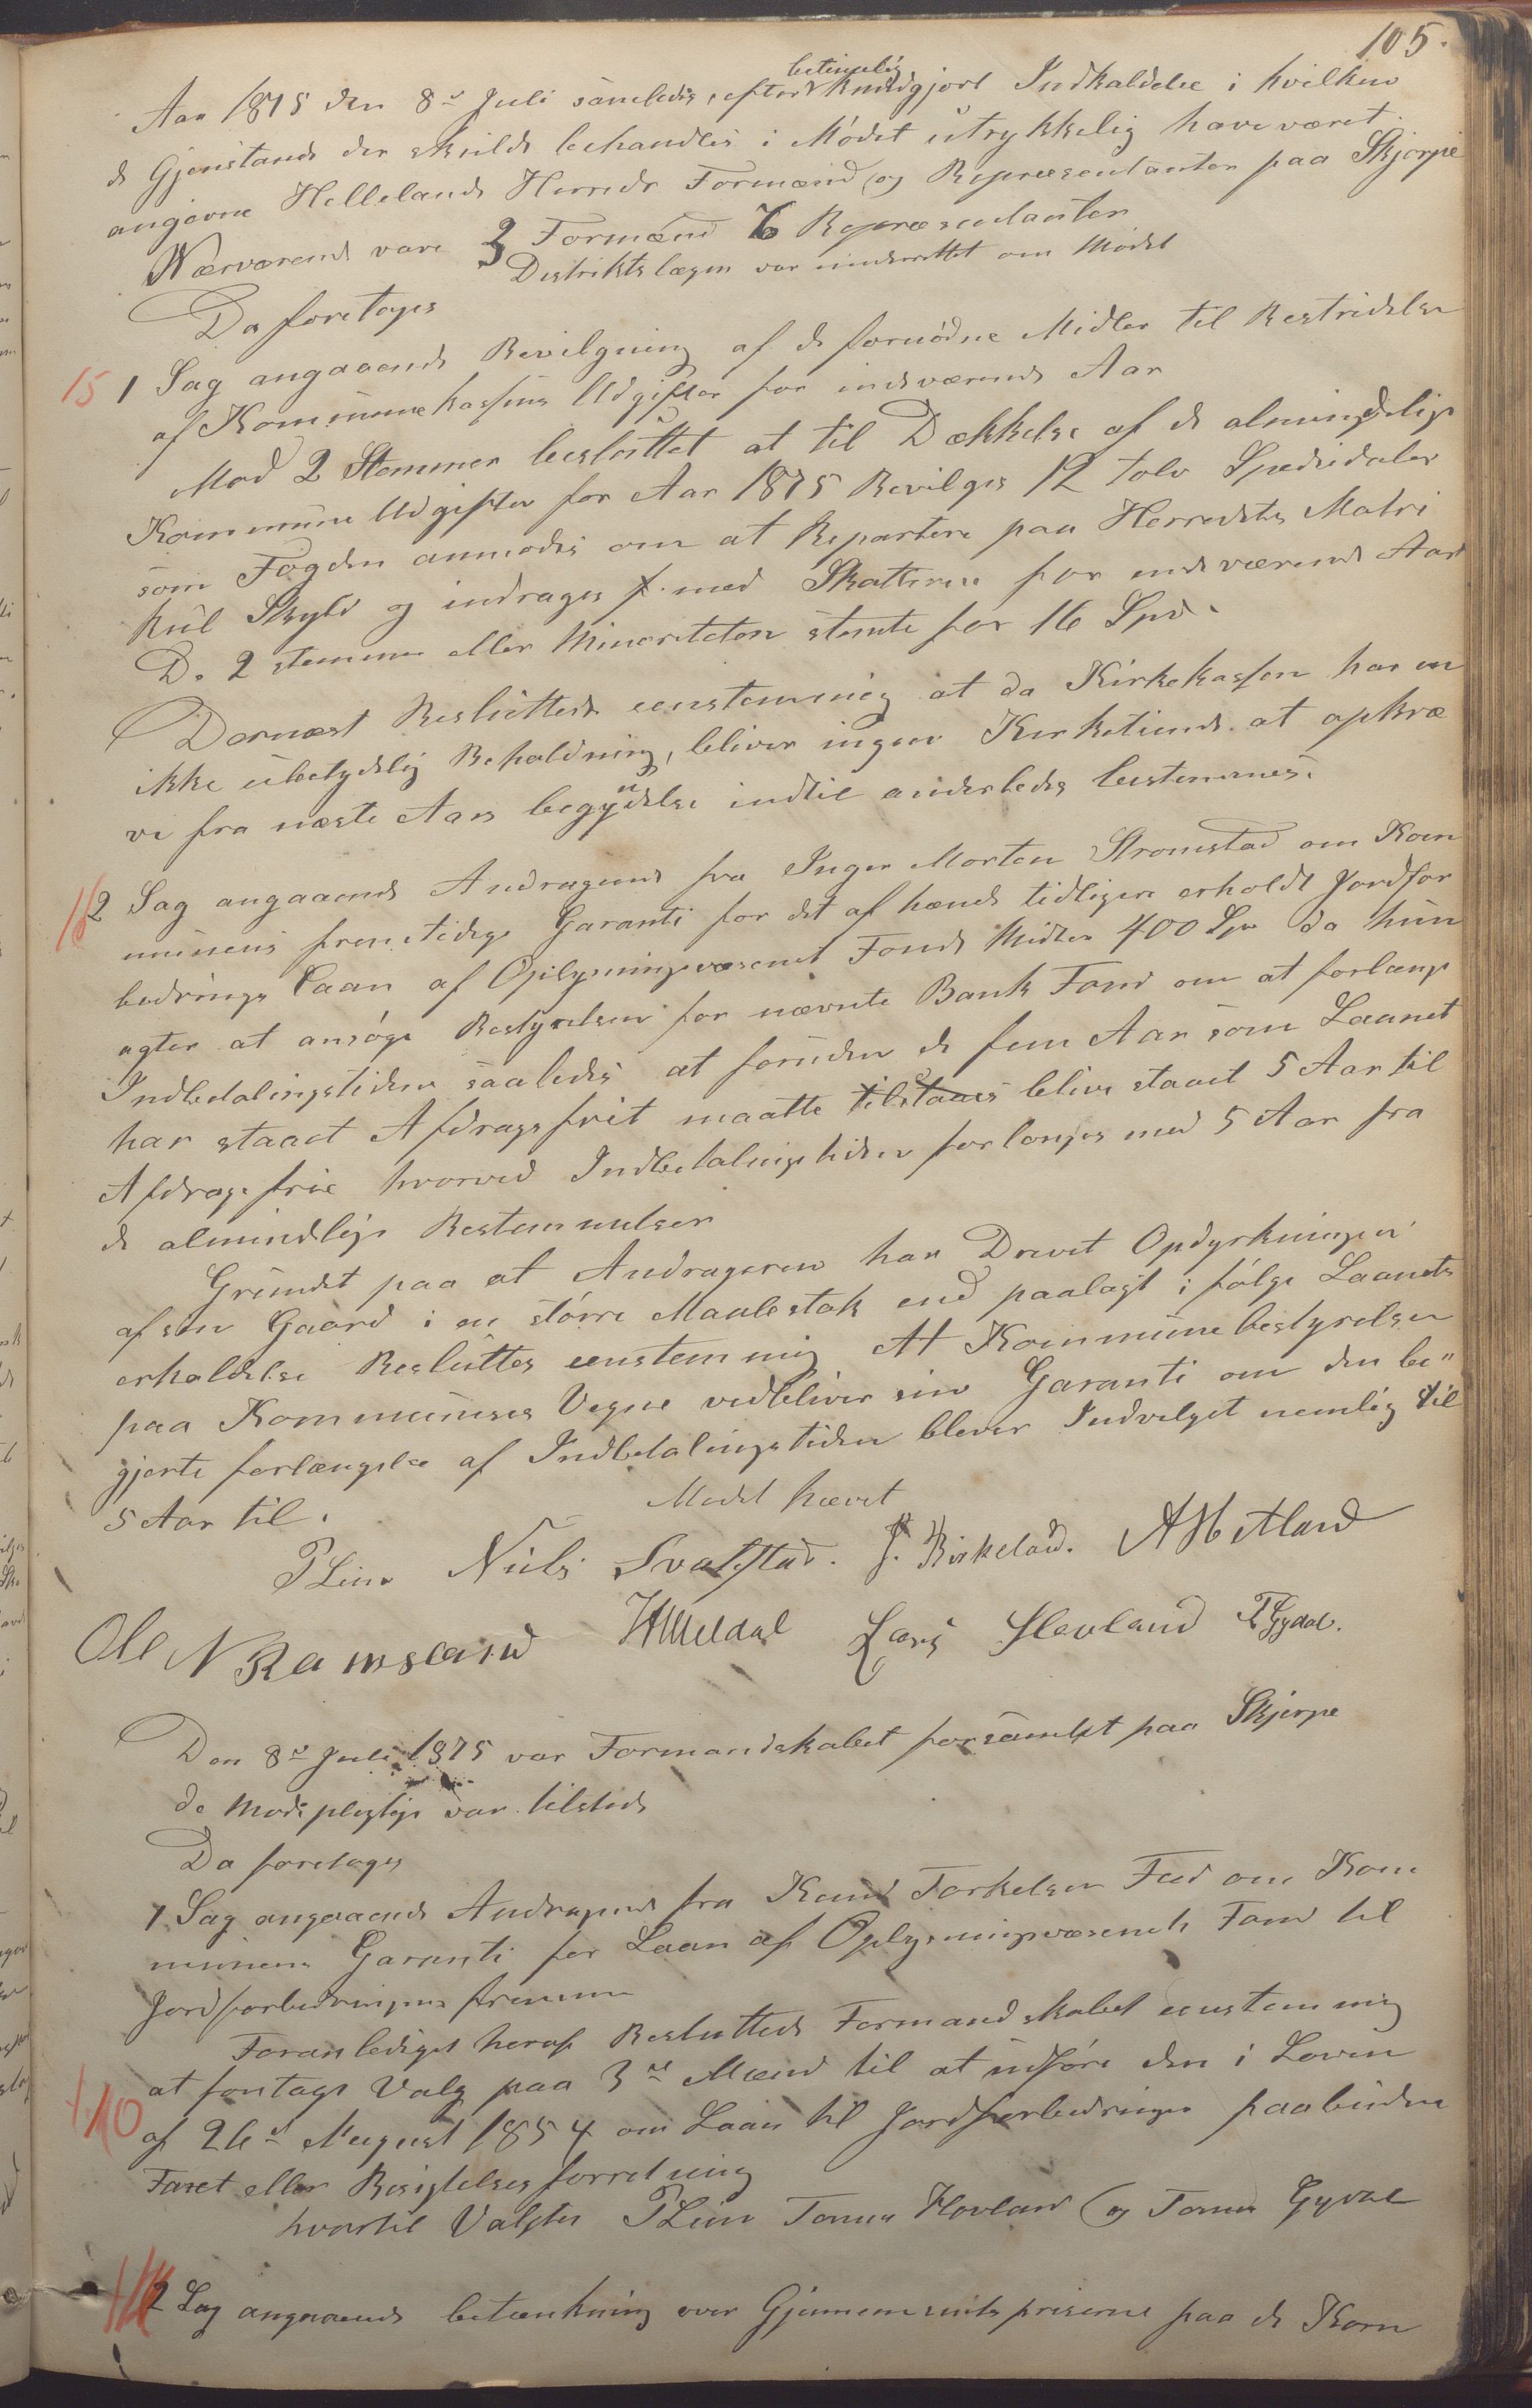 105.
Aar 1875 den 8de Juli samledes, efter betimelig kundgjort Indkaldelse i hvilken
de Gjenstande der skulde behandles i Mødet utrykkelig have været
angivne Hellelands Herreds Formænd og Repræsentanter paa Skjerpe
Nærværende vare 3 Formænd 6 Repræsentanter
Distriktslægen var underrettet om Mødet
Da foretoges
15 1 Sag angaaende Bevilgning af de fornødne Midler til Bestridelse
af Kommunekassens Udgifter for indeværende Aar
Mod 2 Stemmer besluttet at til Dækkelse af de almindelige
Kommune Udgifter for Aar 1875 Bevilges 12 tolv Spesidaler
som Fogden anmodes om at Repartere paa Herredets Matri
kul Skyld og inddrages med Skatterne for indeværende Aar
De 2 stemmer eller Minoriteten stemte for 16 Spd.
Dernæst Besluttede eenstemmig at da Kirkekassen har en
ikke ubetydelig Beholdning, bliver ingen Kirketiende at opkræ
ve fra næste Aars begyndelse indtil anderledes bestemmes.
16 2 Sag angaaende Andragende fra Inger Morten Stromstad om Kom
munens fremtidige Garanti for det af hende tidligere erholdt Jordfor
bedrings Laan af Oplysningsvæsenet Fonds Midler 400 Spd da hun
agter at ansøge Bestyrelsen for nævnte Bank Fond om at forlænge
Indbetalingstiden saaledes at foruden de fem Aar som Laanet
har staaet Afdragsfrit maatte tilstaaes blive staaet 5 Aar til
Afdragsfrie hvorved Indbetalingstiden forlænges med 5 Aar fra
de almindelige Bestemmelser
Grundet paa at Andrageren har Drevet Opdyrkningen
af sin Gaard i en større Maalestok end paalagt i følge Laanets
erholdelse Besluttes eenstemmig At Kommunebestyrelsen
paa Kommunens Vegne vedbliver sin Garanti om den be"
gjerte forlængelse af Indbetalingstiden bliver Indvilget nemlig til
5 Aar til.
Mødet hævet
P Lima Nils Svalestad. J. Birkeland. A Hetland
Ole N Ramsland H Mældal Lars Slevland T Gydal.
Den 8de Juli 1875 var Formandskabet forsamlet paa Skjerpe
de Mødepligtige var tilstede
Da foretoges
1 Sag angaaende Andragende fra Torkelsen om Kom
munens Garanti for Laan af Oplysningsvæsenets Fond til
Jordforbedringens fremme
Foranlediget heraf Besluttede Formandskabet eenstemmig
at foretage Valg paa 3de Mænd til at udføre den i Loven
10 af 26de August 1854 om Laan til Jordforbedringer paabudne
Taxt eller Besigtelsesforretning
hvortil Valgtes P Lima Tønnes Hovland og Tønnes Gydal
11 2 Sag angaaende betænkning over Gjennemsnitspriserne paa de Korn